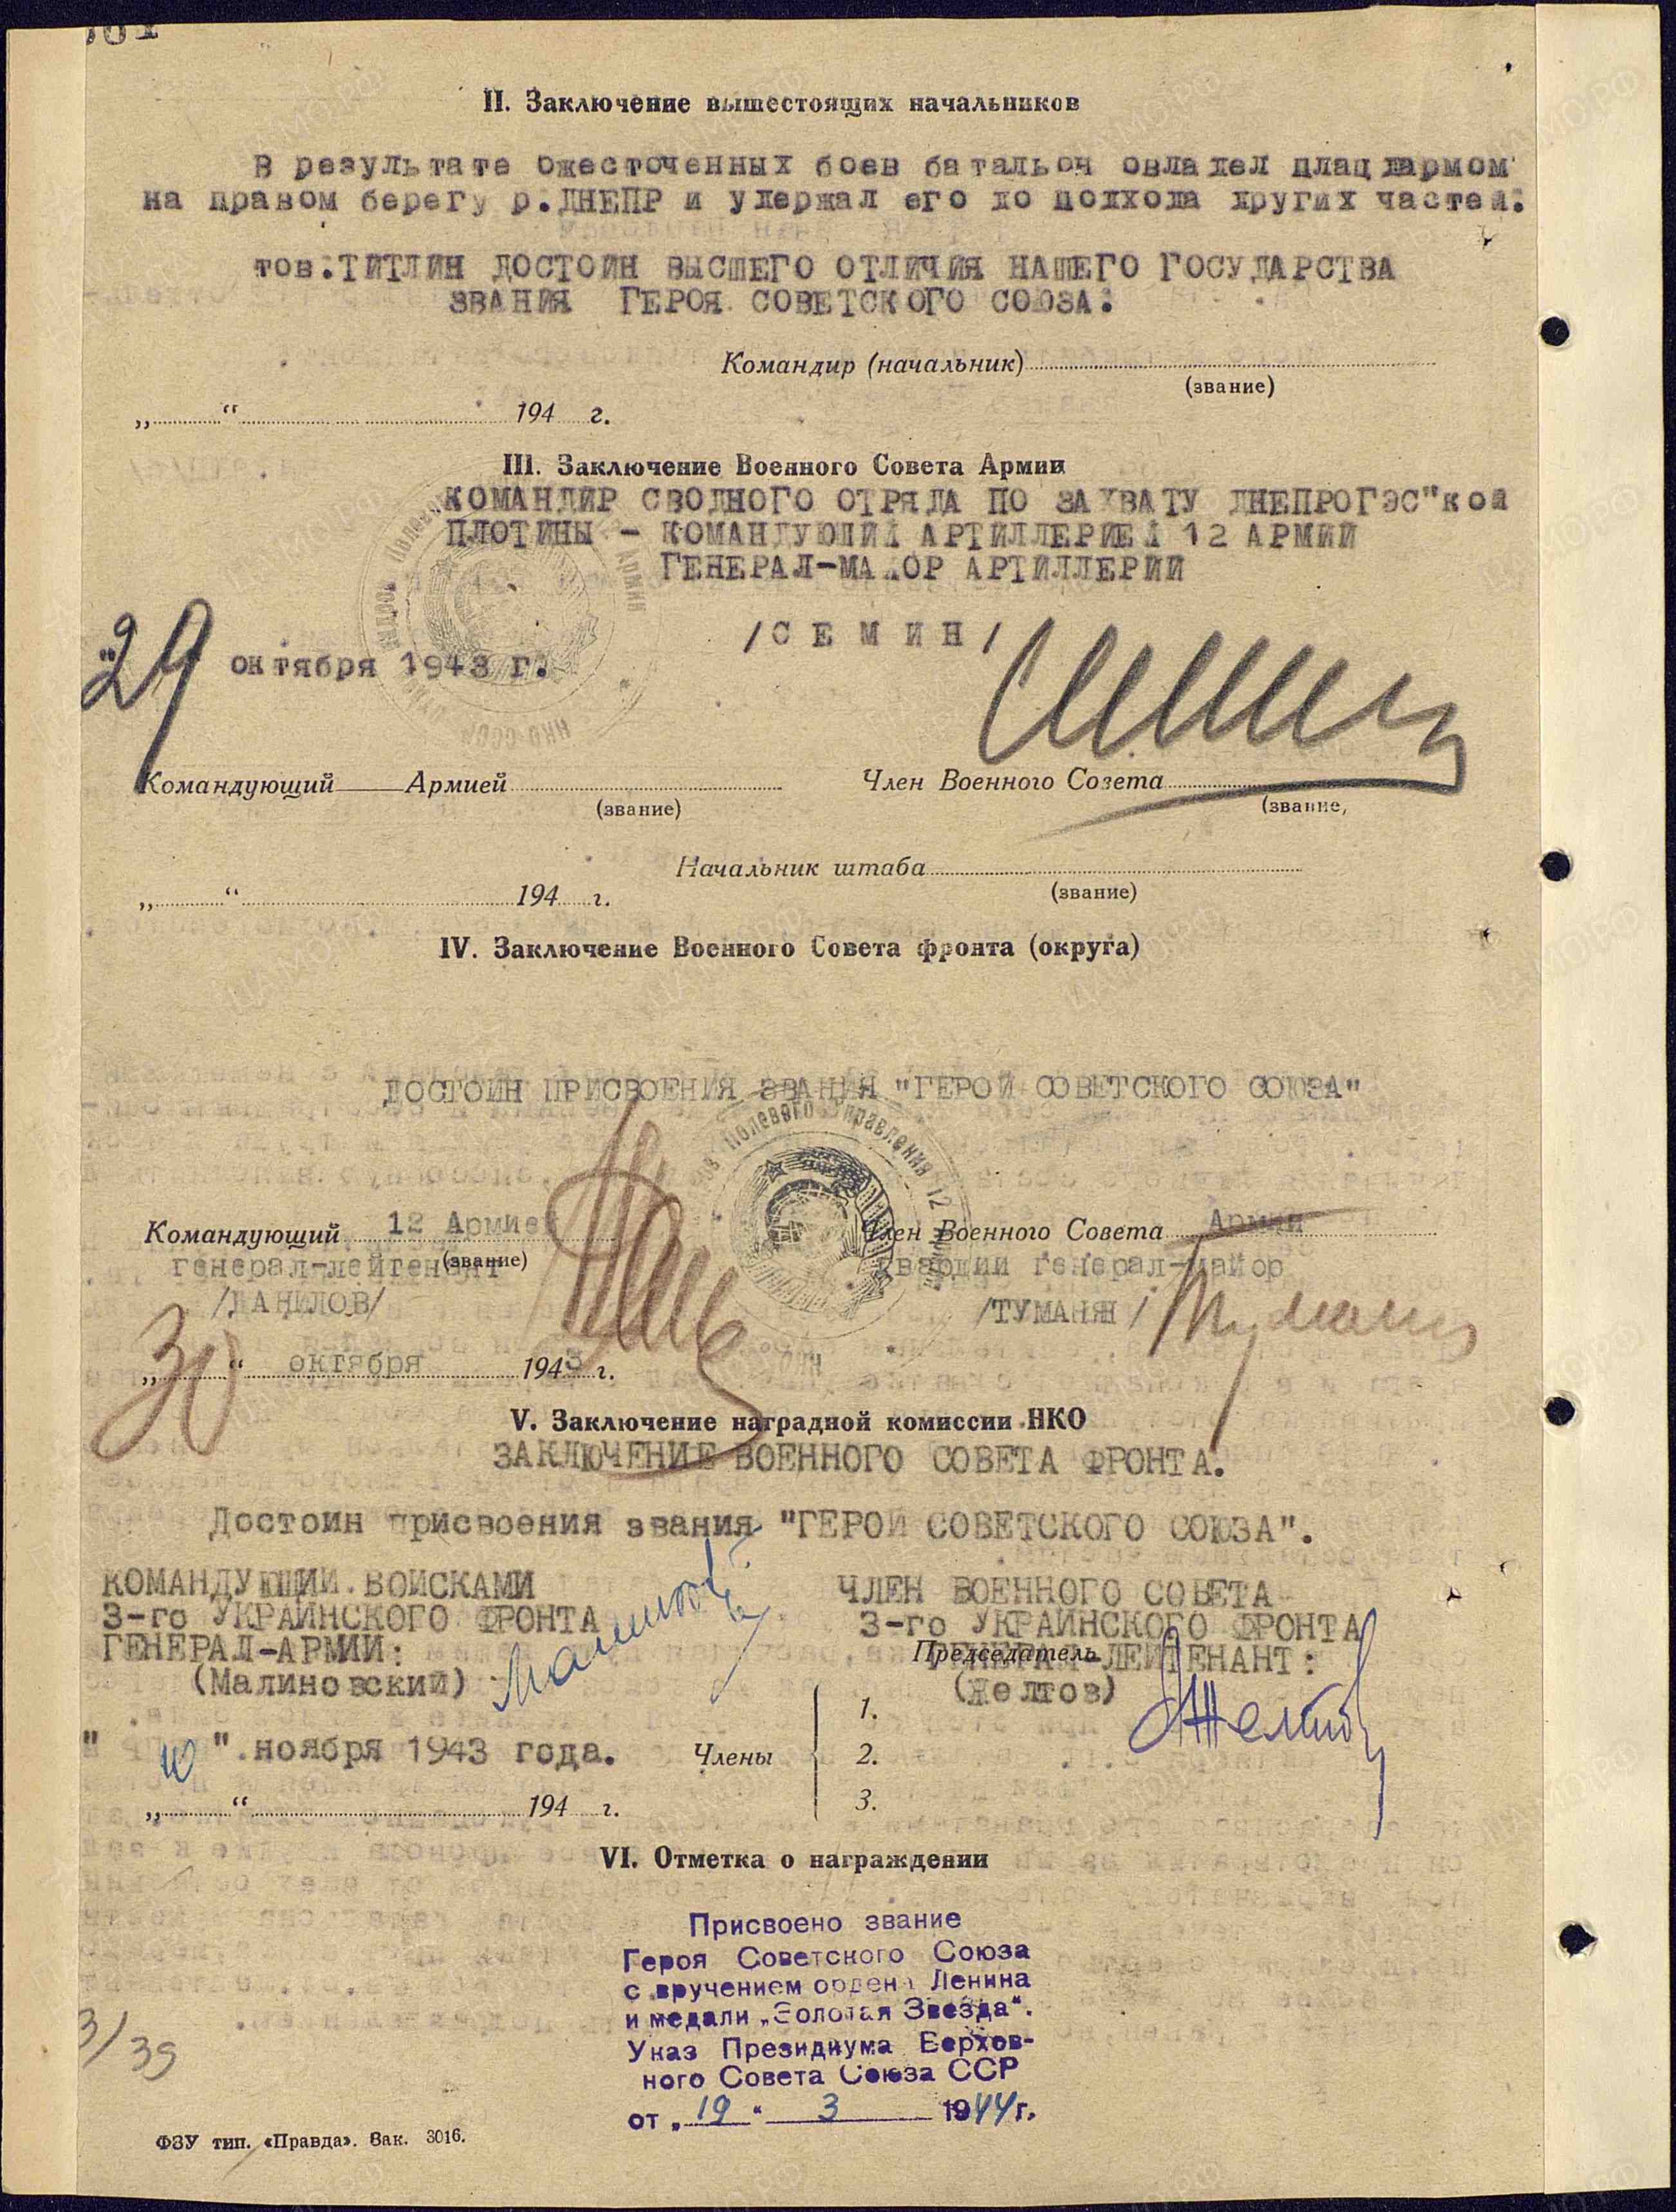 II. Заключение вышестоящих начальников
В результате ожесточенных боев батальон овладел плацдармом
на правом берегу р.ДНЕПР и удержал его до подхода других частей.
тов.ТИТЛИН ДОСТОИН ВЫСШЕГО ОТЛИЧИЯ НАШЕГО ГОСУДАРСТВА
ЗВАНИЯ ГЕРОЯ СОВЕТСКОГО СОЮЗА.
Командир (начальник)
(звание)
„ “ 194 г.
III. Заключение Военного Совета Армии
КОМАНДИР СВОДНОГО ОТРЯДА ПО ЗАХВАТУ ДНЕПРОГЭС"кой
ПЛОТИНЫ – КОМАНДУЮЩИЙ АРТИЛЛЕРИЕЙ 12 АРМИИ
ГЕНЕРАЛ-МАЙОР АРТИЛЛЕРИИ
/С Е М И Н/
"29 октября 1943 г.
Командующий Армией Член Военного Совета
(звание) (звание,
Начальник штаба
„ “ 194 г. (звание)
IV. Заключение Военного Совета фронта (округа)
ДОСТОИН ПРИСВОЕНИЯ ЗВАНИЯ "ГЕРОЙ СОВЕТСКОГО СОЮЗА"
Полевого Управления 12
Командующий 12 Армией Член Военного Совета Армии
(звание)
генерал-лейтенант гвардии генерал-майор
/ДАНИЛОВ/ /ТУМАНЯН/ Туманян
„30“ октября 1943 г.
V. Заключение наградной комиссии НКО
ЗАКЛЮЧЕНИЕ ВОЕННОГО СОВЕТА ФРОНТА.
Достоин присвоения звания "ГЕРОЙ СОВЕТСКОГО СОЮЗА".
КОМАНДУЮЩИЙ ВОЙСКАМИ ЧЛЕН ВОЕННОГО СОВЕТА
3-го УКРАИНСКОГО ФРОНТА 3-го УКРАИНСКОГО ФРОНТА
ГЕНЕРАЛ-АРМИИ: Председатель ГЕНЕРАЛ-ЛЕЙТЕНАНТ:
(Малиновский) (Желтов) Желтов
1.
" 10 " ноября 1943 года. Члены 2.
„ “ 194 г. 3.
VI. Отметка о награждении
Присвоено звание
Героя Советского Союза
с вручением ордена Ленина
и медали „Золотая Звезда“.
Указ Президиума Верхов-
ного Совета Союза ССР
от „19“ 3 1944 г.
3/39
ФЗУ тип. «Правда». Зак. 3016.